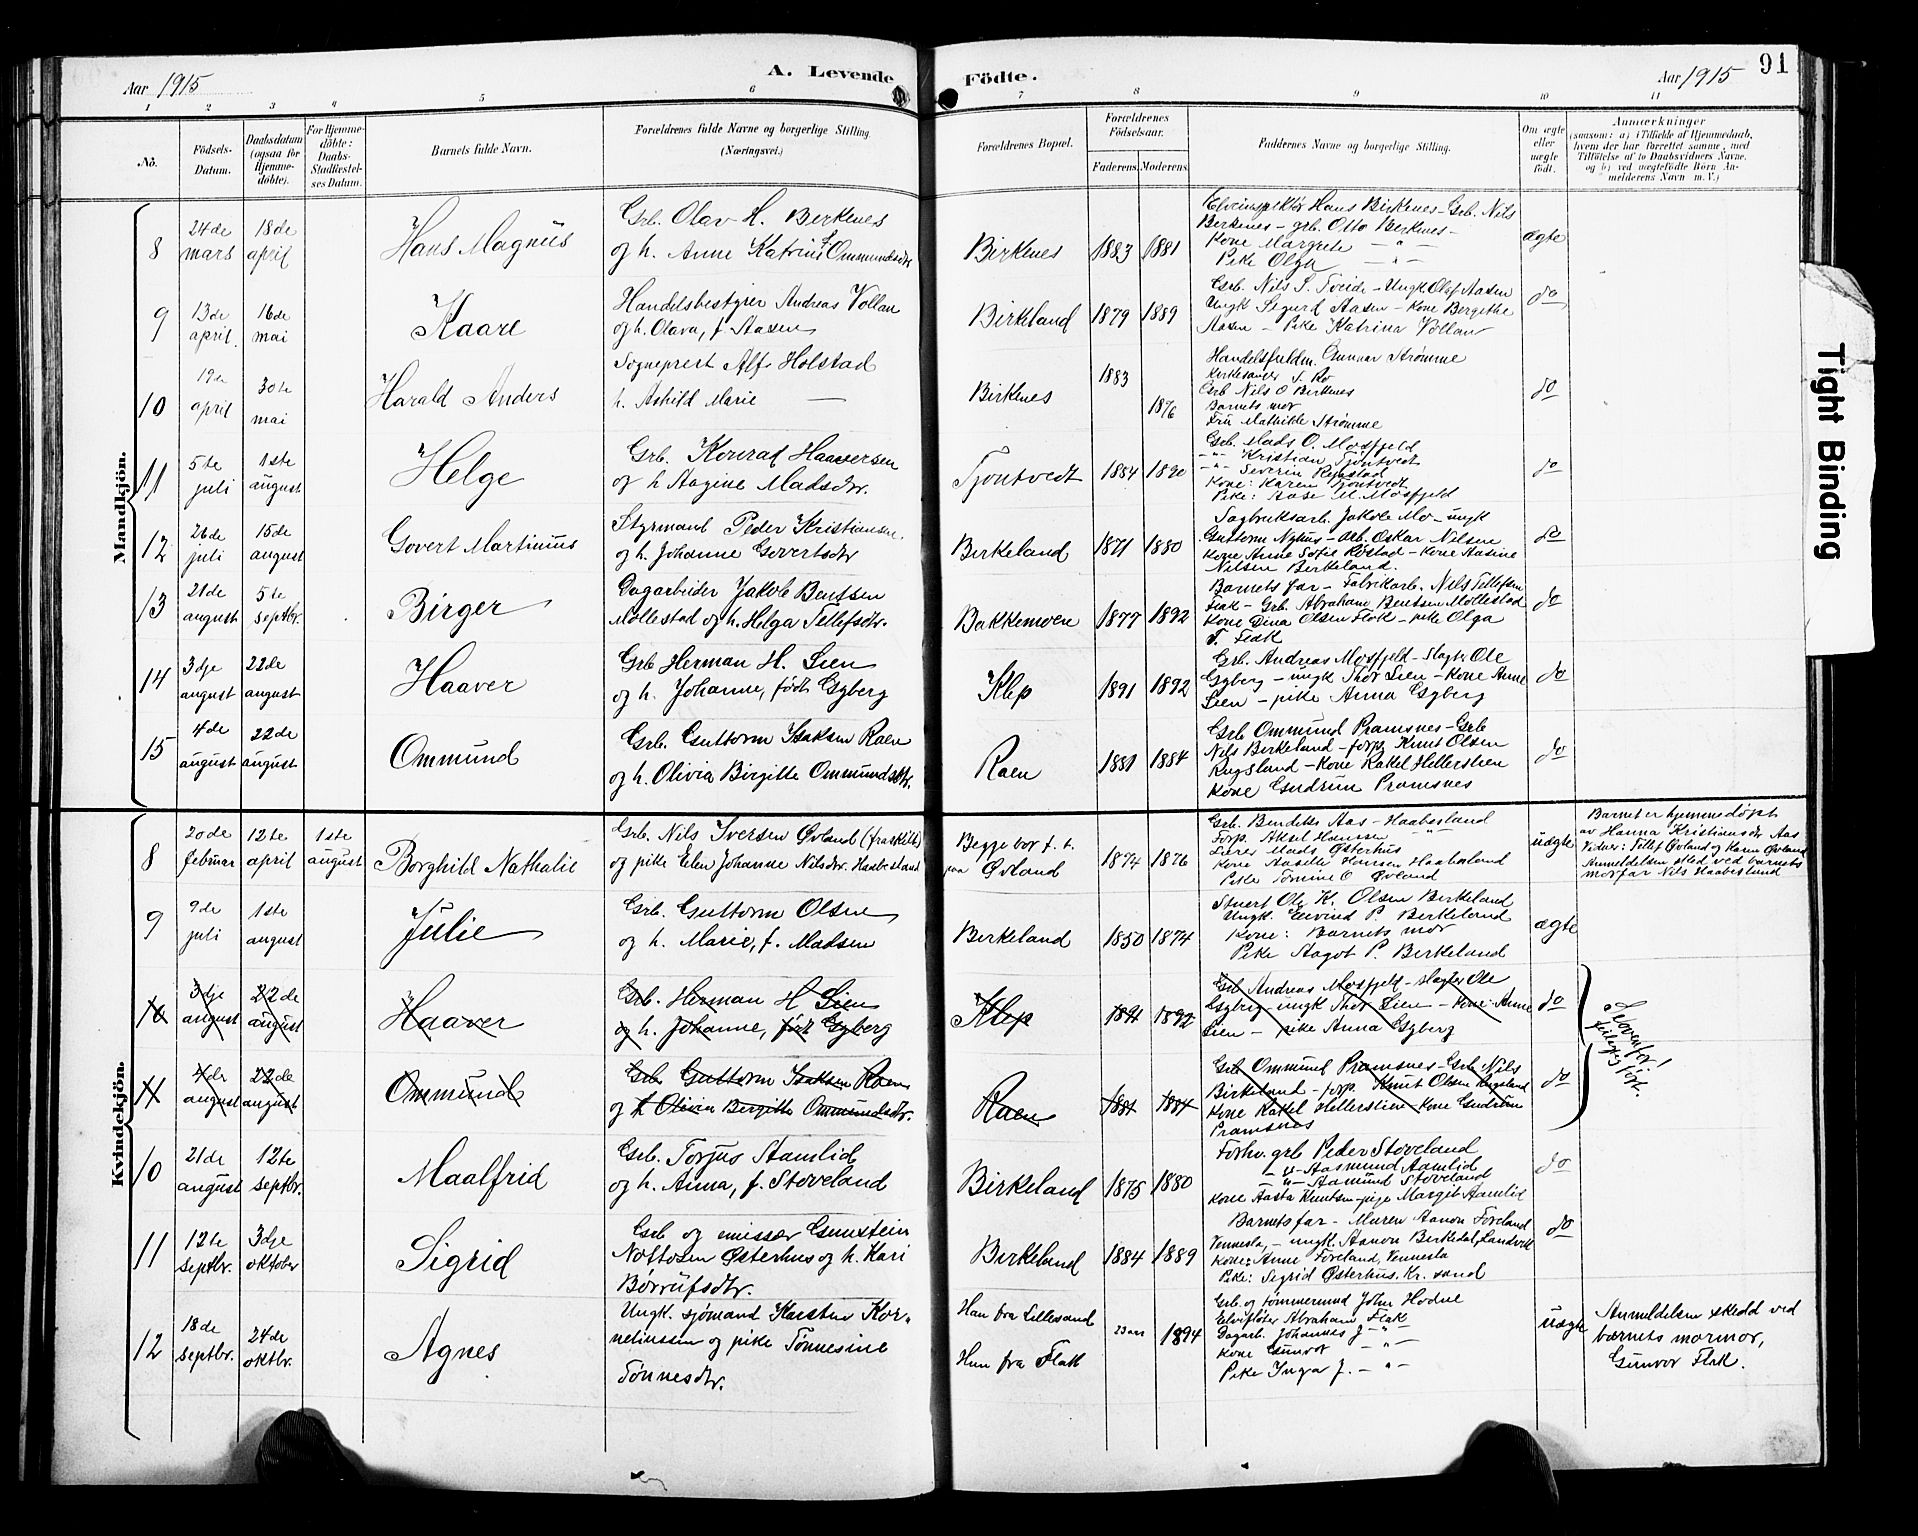 Aar 1915
A. Levende Födte.
Aar 1915
91
1 2 3 4 5 6 7 8 9 10 11
No.
Födsels-
Datum.
Daabsdatum
(ogsaa for
Hjemme-
døbte).
For Hjemme-
döbte:
Daabs-
Stadfæstel-
ses Datum.
Barnets fulde Navn.
Forældrenes fulde Navne og borgerlige Stilling.
(Næringsvei.)
Forældrenes Bopæl.
Forældrenes
Födselsaar.
Faderens. Moderens.
Faddernes Navne og borgerlige Stilling.
Om ægte
eller
uægte
født.
Anmærkninger
(saasom: a) i Tilfælde af Hjemmedaab,
hvem der har forrettet samme, med
Tilføielse af to Daabsvidners Navne,
og b) ved uægtefødte Börn An-
melderens Navn m. V.)
Mandkjön.
8
24de
mars
18de
april
Hans Magnus
Grb. Olav H. Birkenes
og h. Anne Katrine Ommundsdtr
Birkenes
1883
1881
Hans Birkenes - Grb. Nils
Birkenes - grb. Otto Birkenes -
Kone Margrete - " -
Pike Olga - " -
ægte
9
13de
april.
16de
mai
Kaare
Handelsbestyrer Andreas Vollan
og h. Olava, f. Aasen
Birkeland
1879
1889
Grb. Nils S. Tveide - Ungk Olaf Aasen
Ungk Sigurd Aasen - Kone Bergithe
Aasen - Pike Katrina Vollan
do
10
19de
april
30te
mai
Harald Anders
Sogneprest Alf Holstad
h. Ashild Marie —
Birkenes
1883
1876
Handelsfuldm. Gunnar Strømme
Kirkesanger S. Ro
Grb Nils O Birkenes
Barnets mor
Fru Mathilde Strømme
do
11
5te
juli
1ste
august
Helge
Grb. Konrad Haaversen
og h Aagine Madsdtr.
Tjøntvedt
1884
1890
Grb. Mads O. Mosfjeld
- " - Kristian Tjøntvedt
- " - Severin Repstad
Kone: Karen Tjøntvedt
Pike: Aase M. Mosfjeld
do
12
26de
juli
15de
august
Govert Martinius
Styrmand Peder Kristiansen.
og h. Johanne Govertsdtr
Birkeland
1871
1880
Sagbruksarb. Jakob Mo - ungk
Guttorm Nyhus - arb. Oskar Nilsen
Kone Anne Sofie Røstad - Kone Aasine
Nilsen Birkeland.
do
13
21de
august
5te
septbr.
Birger
Dagarbeider Jakob Bentsen
Møllestad og h. Helga Tellefsdtr.
Bakkemoen
1877
1892
Barnets far - Fabrikarb. Nils Tellefsen
Flak - Grb. Abraham Bentsen Møllestad
Kone Dina Olsen Flak - pike Olga
T. Flak
do
14
3dje
august
22de
august
Haaver
Grb Herman H. Lien
og h. Johanne, født Egyberg
Klep
1891
1892
Grb. Andreas Mosfjeld - Slagter Ole
Egyberg - ungk Thor Lien - Kone Anne
Lien - pike Anna Egyberg
do
15
4de
august
22de
august
Ommund
Grb. Guttorm Isaksen Raen
og h. Olivia Birgitte Ommundsdtr.
Raen
1881
1884
Grb Ommund Pramsnes - Grb
Nils Birkeland - forp. Knut Olsen
Rugsland - Kone Rakel Hellerslien
Kone Gudrun Pramsnes
do
Kvindekjön.
8
20de
februar
12te
april
1ste
august
Borghild Nathalie
Grb. Nils Iversen Øvland (fraskilt)
og pike Elen Johanne Nilsdtr. Haabesland
Begge bor f. t.
paa Øvland
1874
1876
Grb. Bendikt Aas - Haabesland
Forp. Aksel Hansen - " -
Lærer Mads Østerhus
Kone Aaselle Hansen Haabesland
Pike Tomine O Øvland
uægte
Barnet er hjemmedøpt
av Hanna Kristiansdtr Aas
Vidner: Tellef Øvland og Karen Øvland
Anmeldelsen sked ved barnets
morfar Nils Haabesland
9
9de
juli
1ste
august
Julie
Grb. Guttorm Olsen
og h. Marie, f. Madsen
Birkeland
1850
1874
Stuert Ole K. Olsen Birkeland
Ungk. Eivind P. Birkeland
Kone: Barnets mor
Pike Aagot P. Birkeland
ægte
10
3dje
august
22de
august
Haaver
Grb. Herman H Lien
og h. Johanne, født Egyberg
Klep
1891
1892
Grb Andreas Mosfjeld - slagter Ole
Egyberg - ungk Thor Lien - Kone Anne
Lien - pike Anna Egyberg
do
11
4de
august
22de
august
Ommund
Grb Guttorm Isaksen Raen
og h Olivia Birgitte Ommundsdtr.
Raen
1881
1884
Grb Ommund Pramsnes - Grb. Nils
Birkeland - forp. Knut Olsen Rugsland
Kone Rakel Hellerslien - Kone Gudrun
Pramsnes
do
10
21de
august
12te
septbr.
Maalfrid
Grb. Torjus Aamlid
og h. Anna, f. Støveland
Birkeland
1875
1880
Forhv. grb Peder Støveland
- " - Aasmund Aamlid
- " - Aamund Støveland
Kone Aasta Knutsen - pige Margit Aamlid
do
11
12te
septbr.
3dje
oktober
Sigrid
Grb og emissær Gunstein
Nottosen Østerhus og h. Kari
Børrufsdtr.
Birkeland
1884
1889
Barnets far - Murer Aanon Foreland
Vennesla, - ungk. Aanon Birkedal, Landvik
Kone: Anne Foreland, Vennesla
Pike: Sigrid Østerhus. Kr. sand
do
12
18de
septbr.
24de
oktbr.
Agnes
Ungk. sjømand Karsten Kor-
neliussen og pike Tønnesine
Tønnesdtr.
Han fra Lillesand
Hun fra Flak
23 aar
1894
Grb. og tømmermand John Hodne
Elvefløter Abraham Flak
Dagarb. Johannes J - " -
Kone Gunvor - " -
Pike Inga J. - " -
uægte
Anmeldelsen skedd ved
barnets mormor,
Gunvor Flak.
Tight Binding